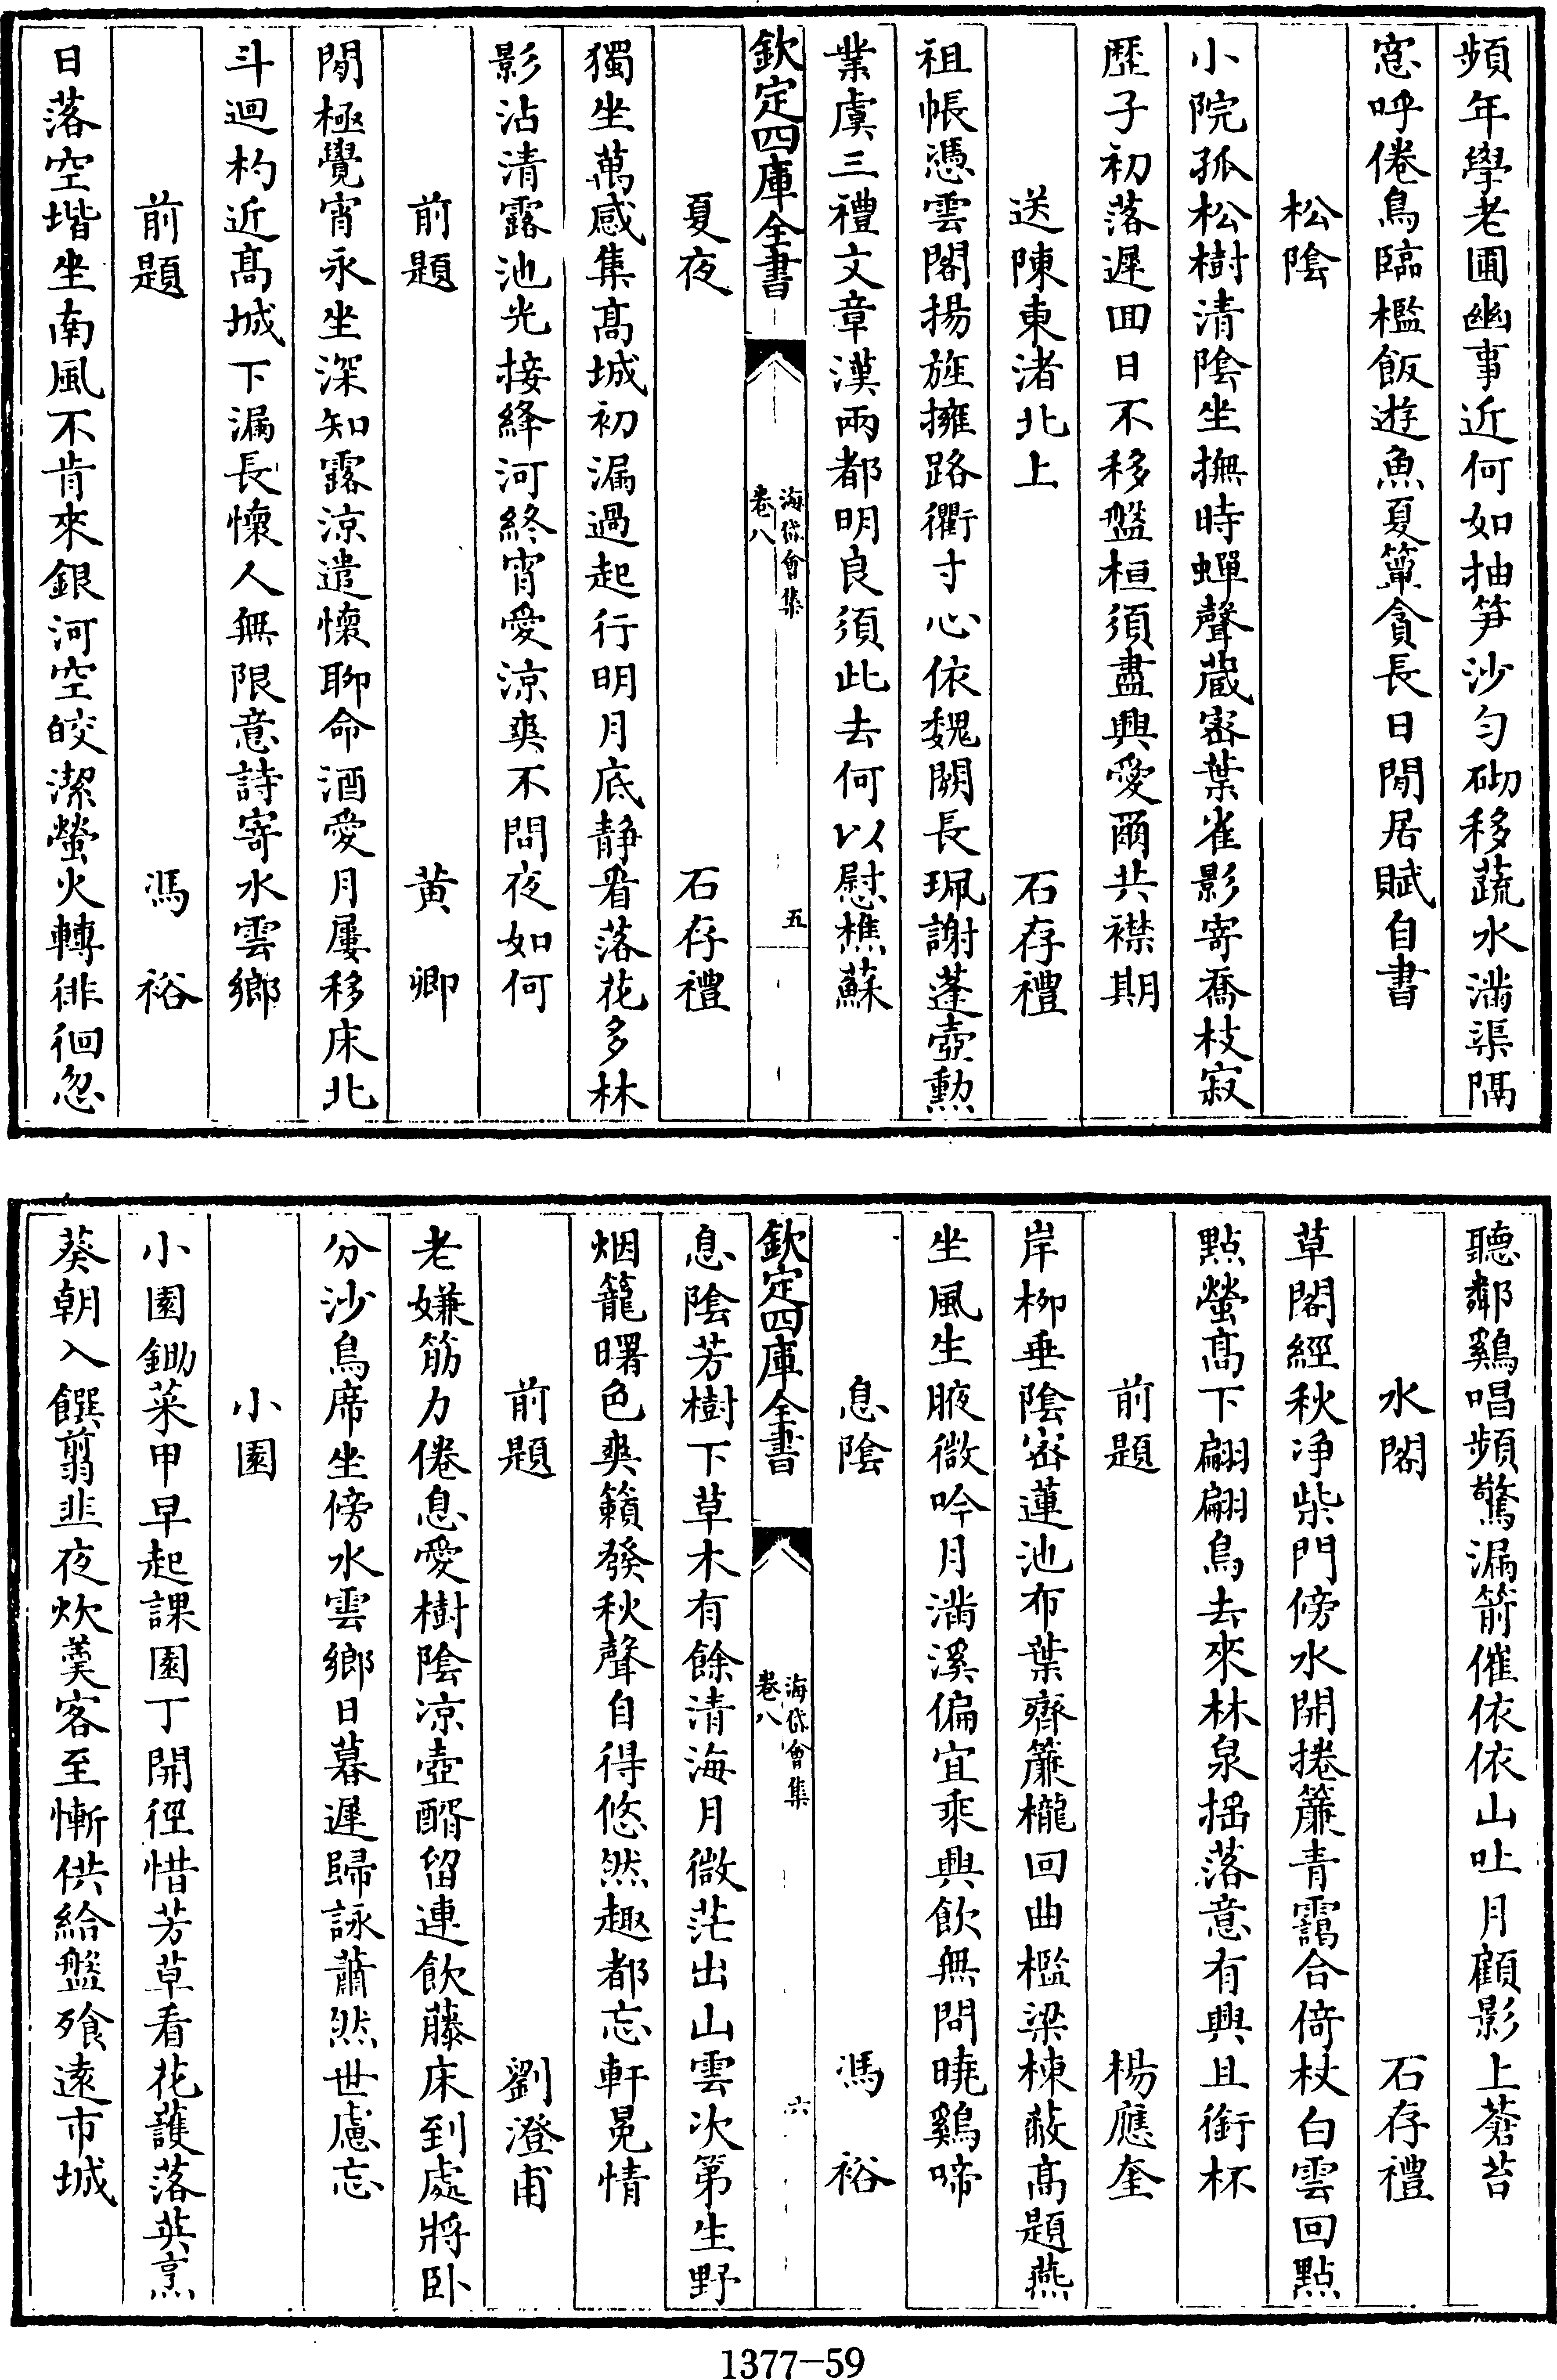 頻年學老圃幽事近何如抽笋沙勻砌移蔬水滿渠隔
窻呼倦鳥臨檻飯遊魚夏簟貪長日閒居賦自書
松陰
小院孤松樹清陰坐撫時蟬聲蔵宻葉雀影寄喬枝寂
歴子初落遲回日不移盤桓須盡興愛爾共襟期
送陳東渚北上　石存禮
祖帳憑雲閣揚旌擁路衢寸心依魏闕長珮謝蓬壺勲
業虞三禮文章漢兩都明良須此去何以慰樵蘇
欽定四庫全書　海岱會集卷八　五
夏夜　石存禮
獨坐萬感集髙城初漏過起行明月底静看落花多林
影沾清露池光接絳河終宵愛涼爽不問夜如何
前題　黄卿
閒極覺宵永坐深知露涼遣懷聊命酒愛月屢移床北
斗迴杓近髙城下漏長懷人無限意詩寄水雲鄉
前題　馮裕
日落空堦坐南風不肯來銀河空皎潔螢火轉徘徊忽
聽鄰鷄唱頻驚漏箭催依依山吐月顧影上蒼苔
水閣　石存禮
草閣經秋净柴門傍水開捲簾青靄合倚杖白雲回點
點螢髙下翩翩鳥去來林泉揺落意有興且銜杯
前題　楊應奎
岸栁垂陰宻蓮池布葉齊簾櫳回曲檻梁棟蔽髙題燕
坐風生腋微吟月滿溪偏宜乘興飲無問曉鷄啼
息陰　馮裕
欽定四庫全書　海岱會集卷八　六
息陰芳樹下草木有餘清海月微茫出山雲次第生野
烟籠曙色爽籟發秋聲自得悠然趣都忘軒冕情
前題　劉澄甫
老嫌筋力倦息愛樹陰凉壺醑留連飲藤床到處將卧
分沙鳥席坐傍水雲鄉日暮遲歸詠蕭然世慮忘
小園
小園鋤菜甲早起課園丁開徑惜芳草看花護落英烹
葵朝入饌翦韭夜炊羮客至慚供給盤飱逺市城
1377-59